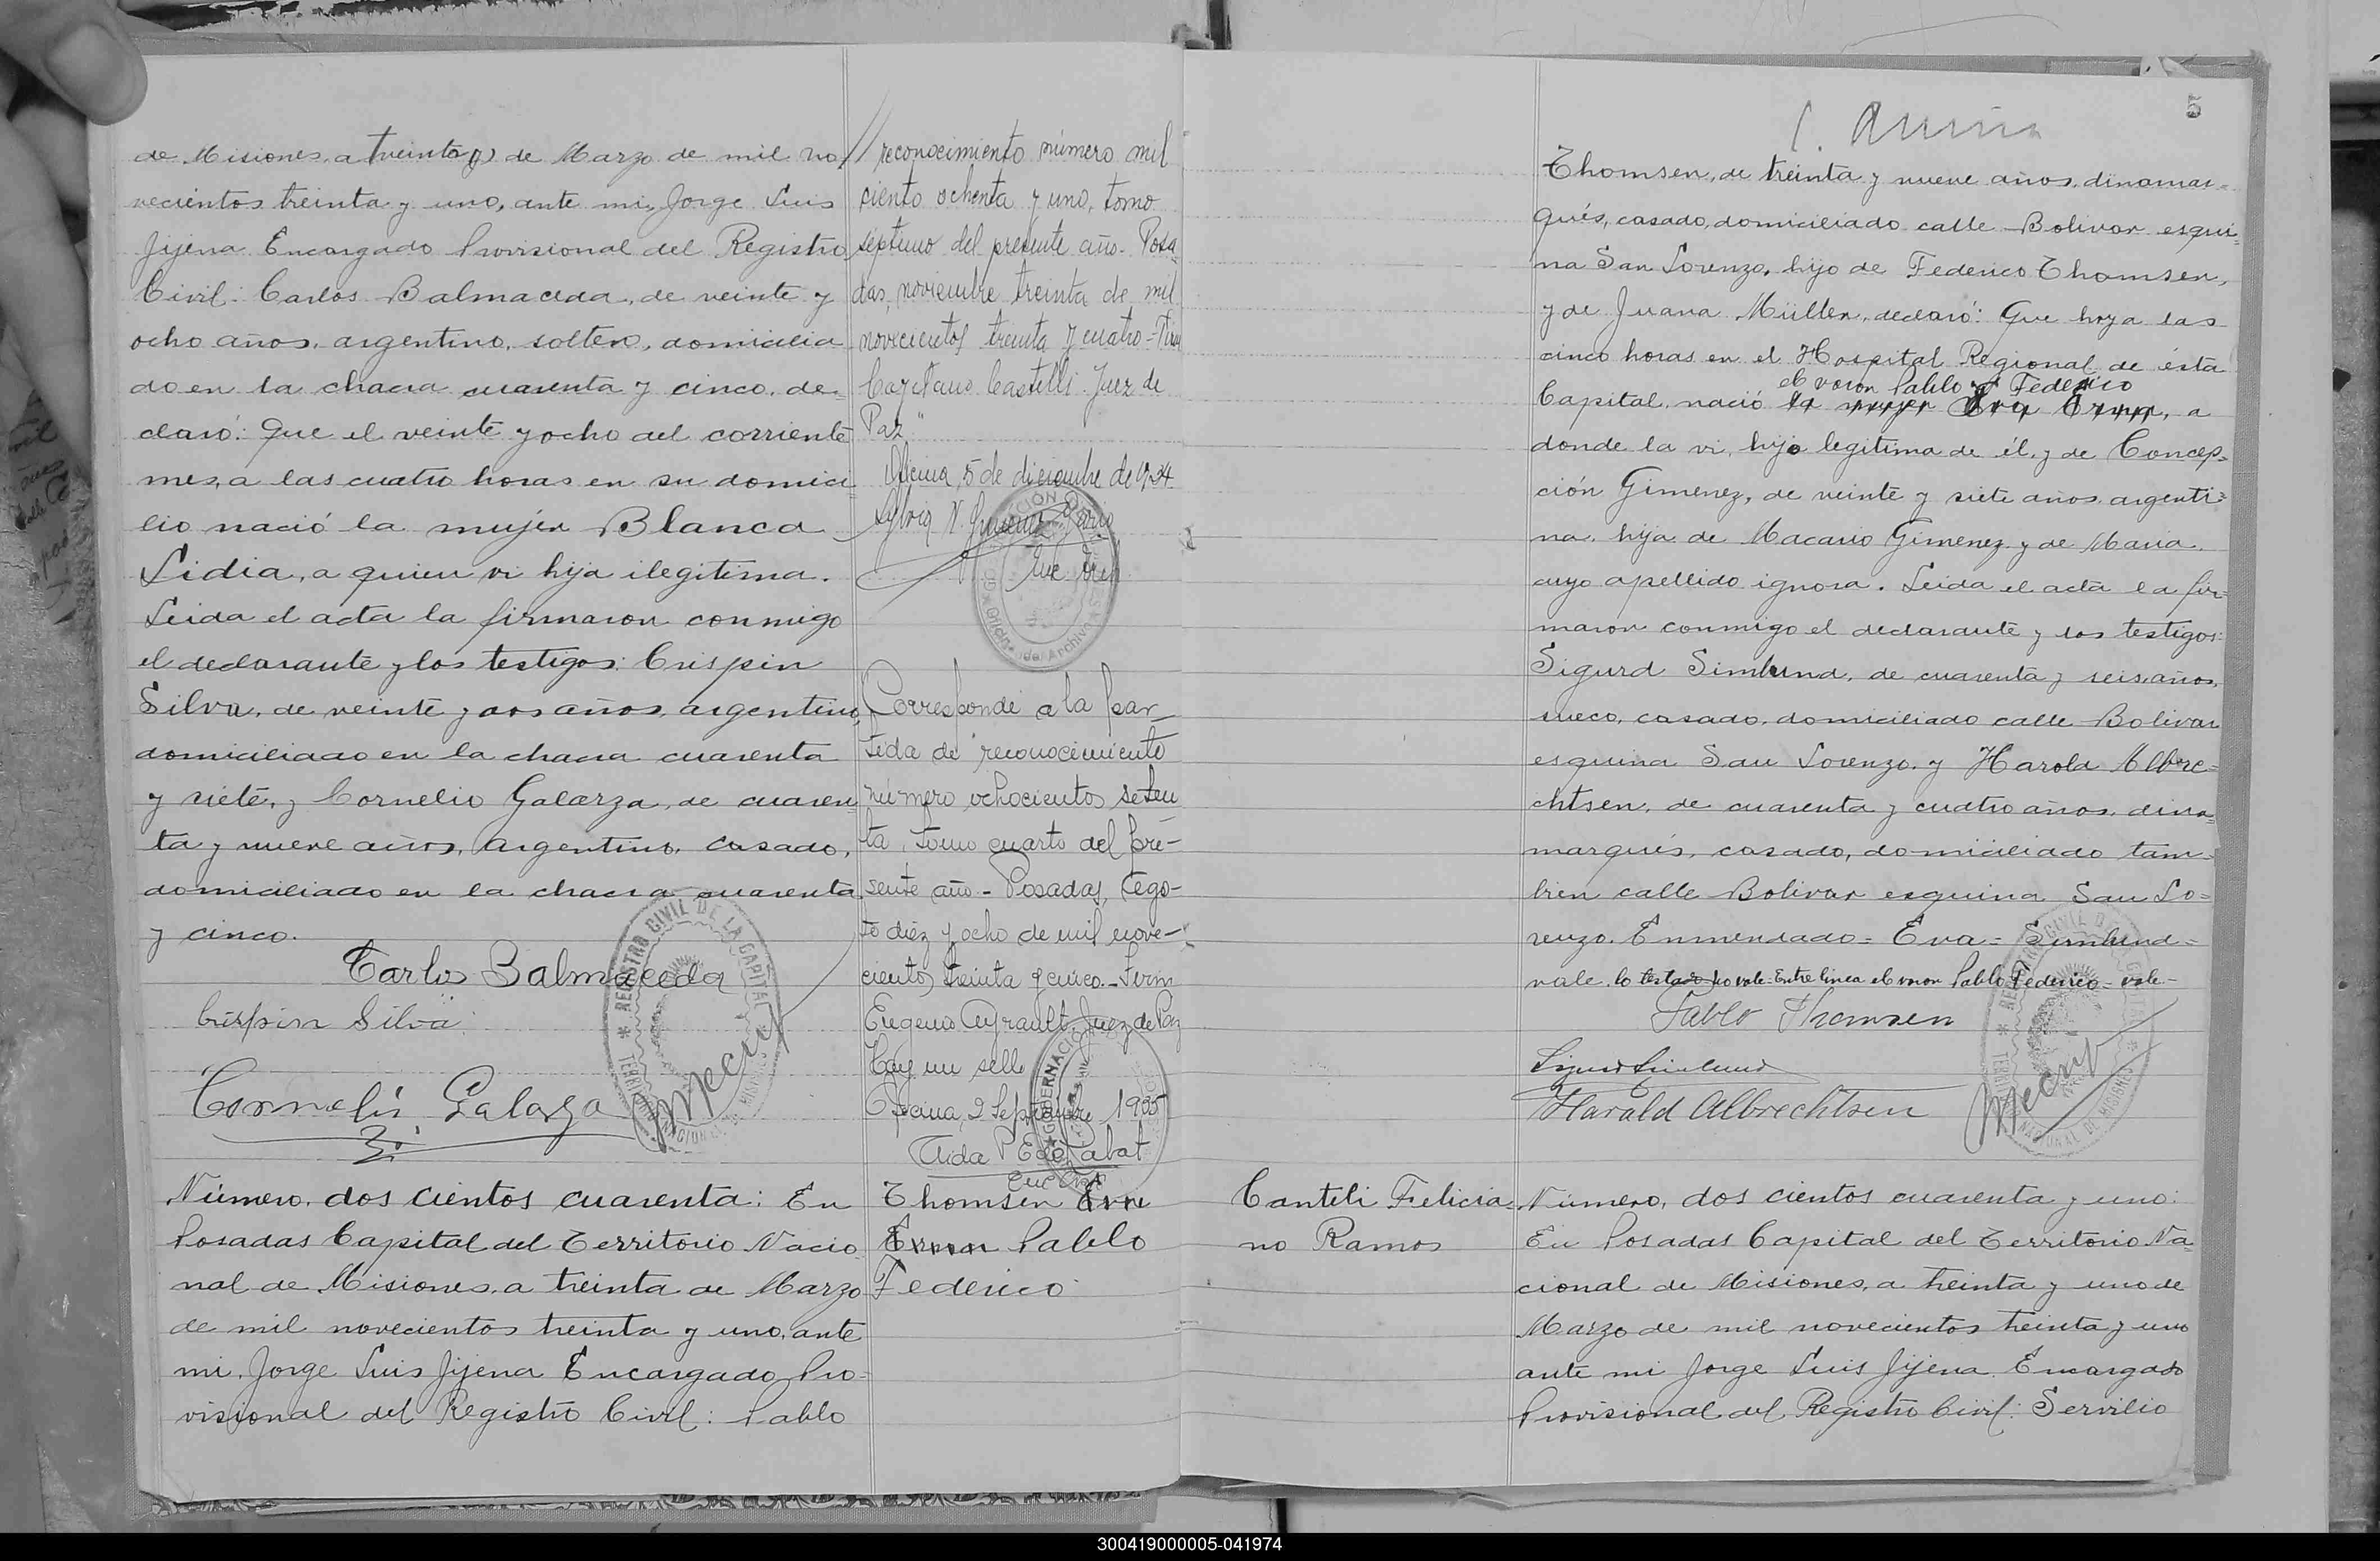 de Misiones, a treinta de Marzo de mil no
vecientos treinta y uno, ante mi, Jorge Luis
Jijena Encargado Provisional del Registro
Civil: Carlos Balmaceda, de veinte y
ocho años, argentino, soltero, domicilia
do en la chacra cuarenta y cinco, de=
claró: Que el veinte y ocho del corriente
mes, a las cuatro horas en su domici
lio nació la mujer Blanca
Lidia, a quien vi hija ilegitima.
Leida el acta la firmaron conmigo
el declarante y los testigos: Crispin
Silva, de veinte y dos años, argentino,
domiciliado en la chacra cuarenta
y siete, y Cornelio Galarza, de cuaren
ta y nueve años, argentino, casado,
domiciliado en la chacra cuarenta
y cinco.
Carlos Balmaceda
Crispin Silva
Cornelio Galarza
REGISTRO CIVIL DE LA CAPITAL
Número, dos cientos cuarenta: En
Posadas Capital del Territorio Nacio
nal de Misiones, a treinta de Marzo
de mil novecientos treinta y uno, ante
mi, Jorge Luis Jijena Encargado Pro=
visional del Registro Civil: Pablo
// reconocimiento número mil
ciento ochenta y uno, tomo
séptimo del presente año. Posa
das, noviembre treinta de mil
novecientos treinta y cuatro
Cayetano Castelli. Juez de
Paz"
Oficina, 5 de diciembre de 1934
Corresponde a la par_
tida de reconocimiento
número ochocientos seten
ta, tomo cuarto del pre-
sente año - Posadas, Ago-
to diez y ocho de mil nove-
cientos treinta y cinco. - Firm
Eugenio Ayrault. Juez de Paz
Hay un sello
Oficina, 2 Septiembre 1935
Thomsen Eva
Erna Pablo
Federico
5
Thomsen, de treinta y nueve años, dinamar=
qués, casado, domiciliado calle Bolivar esqui=
na San Lorenzo, hijo de Federico Thomsen,
y de Juana Müller, declaró: Que hoy a las
cinco horas en el Hospital Regional de ésta
el varon Pablo Federico
Capital, nació la mujer Eva Erna, a
donde la vi, hijo legitima de él, y de Concep=
ción Gimenez, de veinte y siete años argenti=
na, hija de Macario Gimenez y de Maria
cuyo apellido ignora. Leida el acta la fir=
maron conmigo el declarante y los testigos:
Sigurd Simlund, de cuarenta y seis años,
sueco, casado, domiciliado calle Bolivar
esquina San Lorenzo, y Harold Albre=
chtsen, de cuarenta y cuatro años, dina=
marqués, casado, domiciliado tam=
bien calle Bolivar esquina San Lo=
renzo. Enmendado = Eva = Simlund =
vale. lo testado no vale. Entre linea el varon Pablo Federico - vale -
Pablo Thomsen
Harald Albrechtsen
Canteli Felicia=
no Ramos
Número, dos cientos cuarenta y uno:
En Posadas Capital del Territorio Na
cional de Misiones, a treinta y uno de
Marzo de mil novecientos treinta y uno
ante mi Jorge Luis Jijena Encargado
Provisional del Registro Civil: Servilio
300419000005-041974